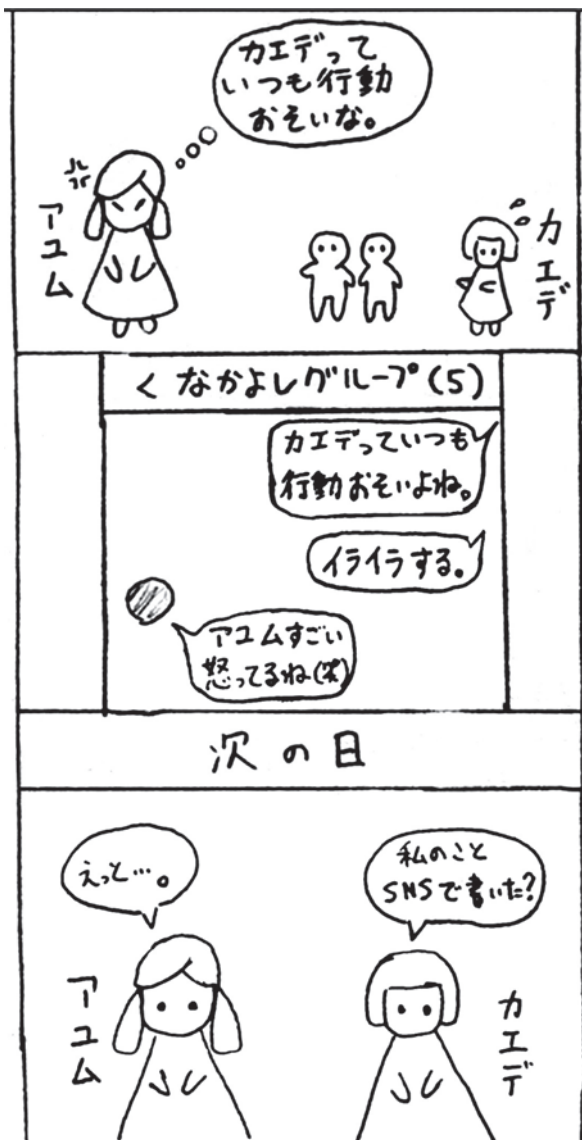 カエデって
いつも行動
おそいな。
アユム
カエデ
< なかよしグループ(5)
カエデっていつも
行動おそいよね。
イライラする。
アユムすごい
怒ってるね(笑)
次の日
私のこと
SNSで書いた?
えっと…。
アユム
カエデ